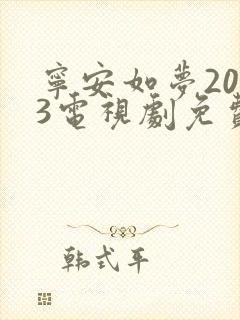 寧安如夢20
3電視劇免費
韩式平